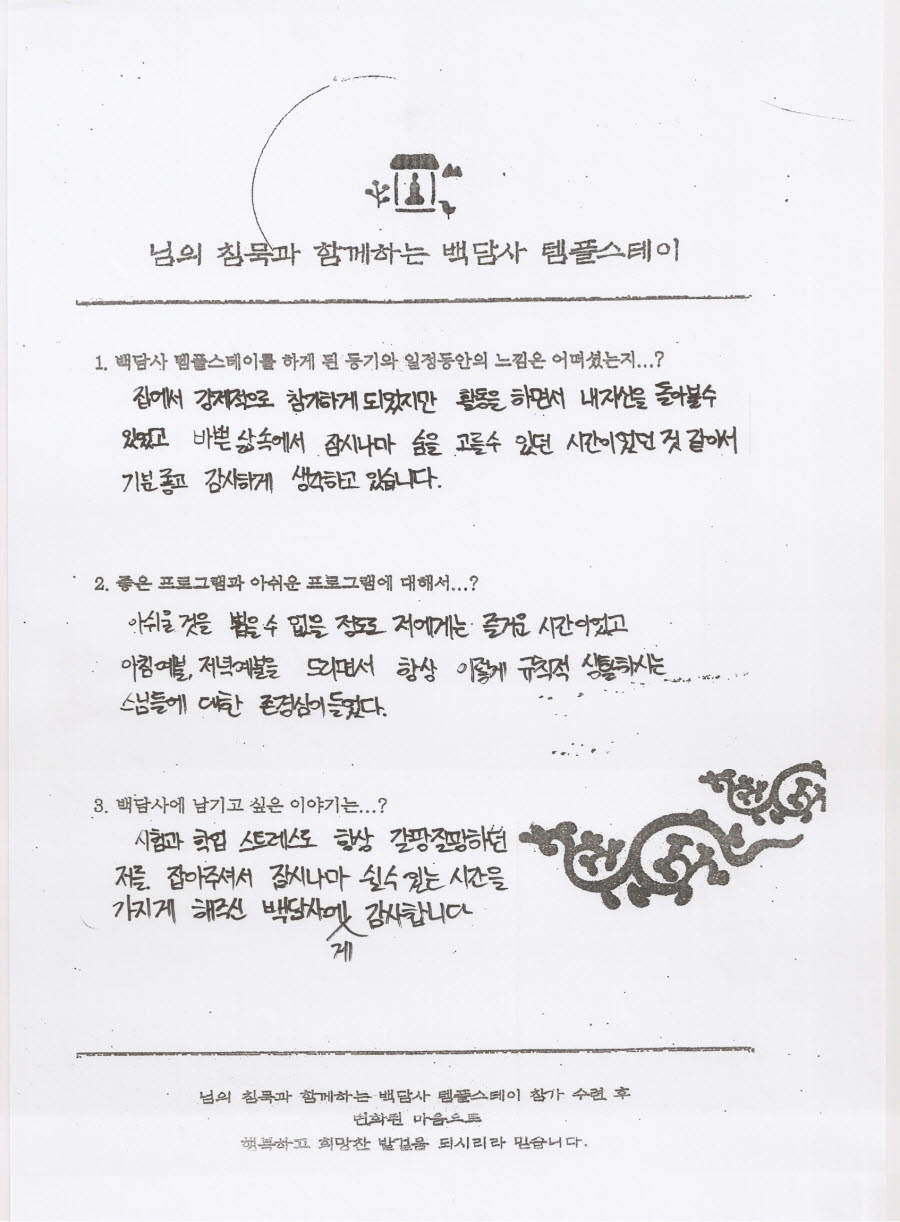 님의 침묵과 함께하는 백담사 템플스테이
1. 백담사 템플스테이를 하게 된 동기와 일정동안의 느낌은 어떠셨는지...?
집에서 강제적으로 참가하게 되었지만 활동을 하면서 내자신을 돌아볼수
있었고 바쁜 삶속에서 잠시나마 숨을 고를수 있던 시간이었던 것 같아서
기분좋고 감사하게 생각하고 있습니다.
2. 좋은 프로그램과 아쉬운 프로그램에 대해서...?
아쉬울 것을 뽑을수 없을 정도로 저에게는 즐거운 시간이었고
아침예불, 저녁예불을 드리면서 항상 이렇게 규칙적 생활하시는
스님들에 대한 존경심이 들었다.
3. 백담사에 남기고 싶은 이야기는...?
시험과 학업 스트레스로 항상 갈팡질팡하던
저를 잡아주셔서 잠시나마 쉴수 있는 시간을
가지게 해주신 백담사에 감사합니다
게
님의 침묵과 함께하는 백담사 템플스테이 참가 수련 후
변화된 마음으로
행복하고 희망찬 발걸음 되시리라 믿습니다.